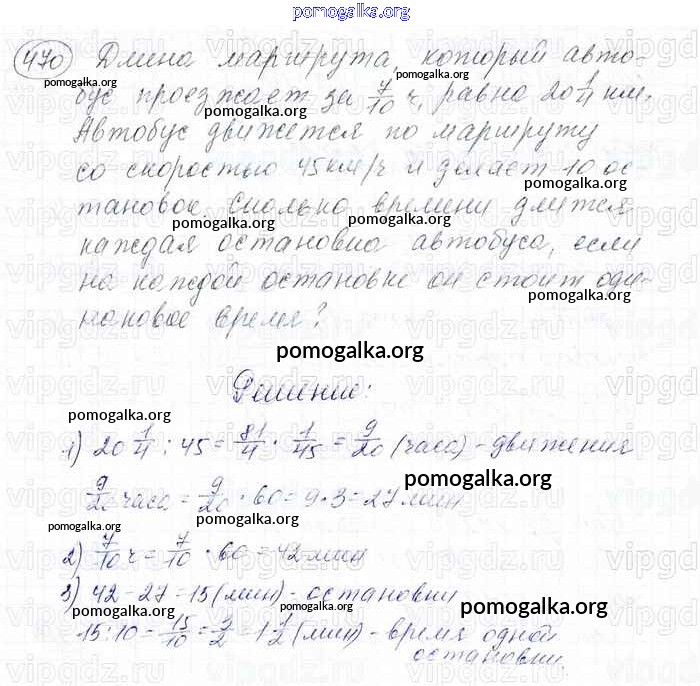 pomogalka.org
470 Длина маршрута, который авто-
бус проезжает за 7/10 ч, равна 20 1/4 км.
Автобус движется по маршруту
со скоростью 45 км/ч и делает 10 ос-
тановок. Сколько времени длится
каждая остановка автобуса, если
на каждой остановке он стоит оди-
наковое время?
pomogalka.org
Решение:
1) 20 1/4 : 45 = 81/4 · 1/45 = 9/20 (часа) - движения
9/20 часа = 9/20 · 60 = 9·3 = 27 мин
2) 7/10 ч = 7/10 · 60 = 42 мин
3) 42 - 27 = 15 (мин) - остановки
15 : 10 = 15/10 = 3/2 = 1 1/2 (мин) - время одной
остановки.